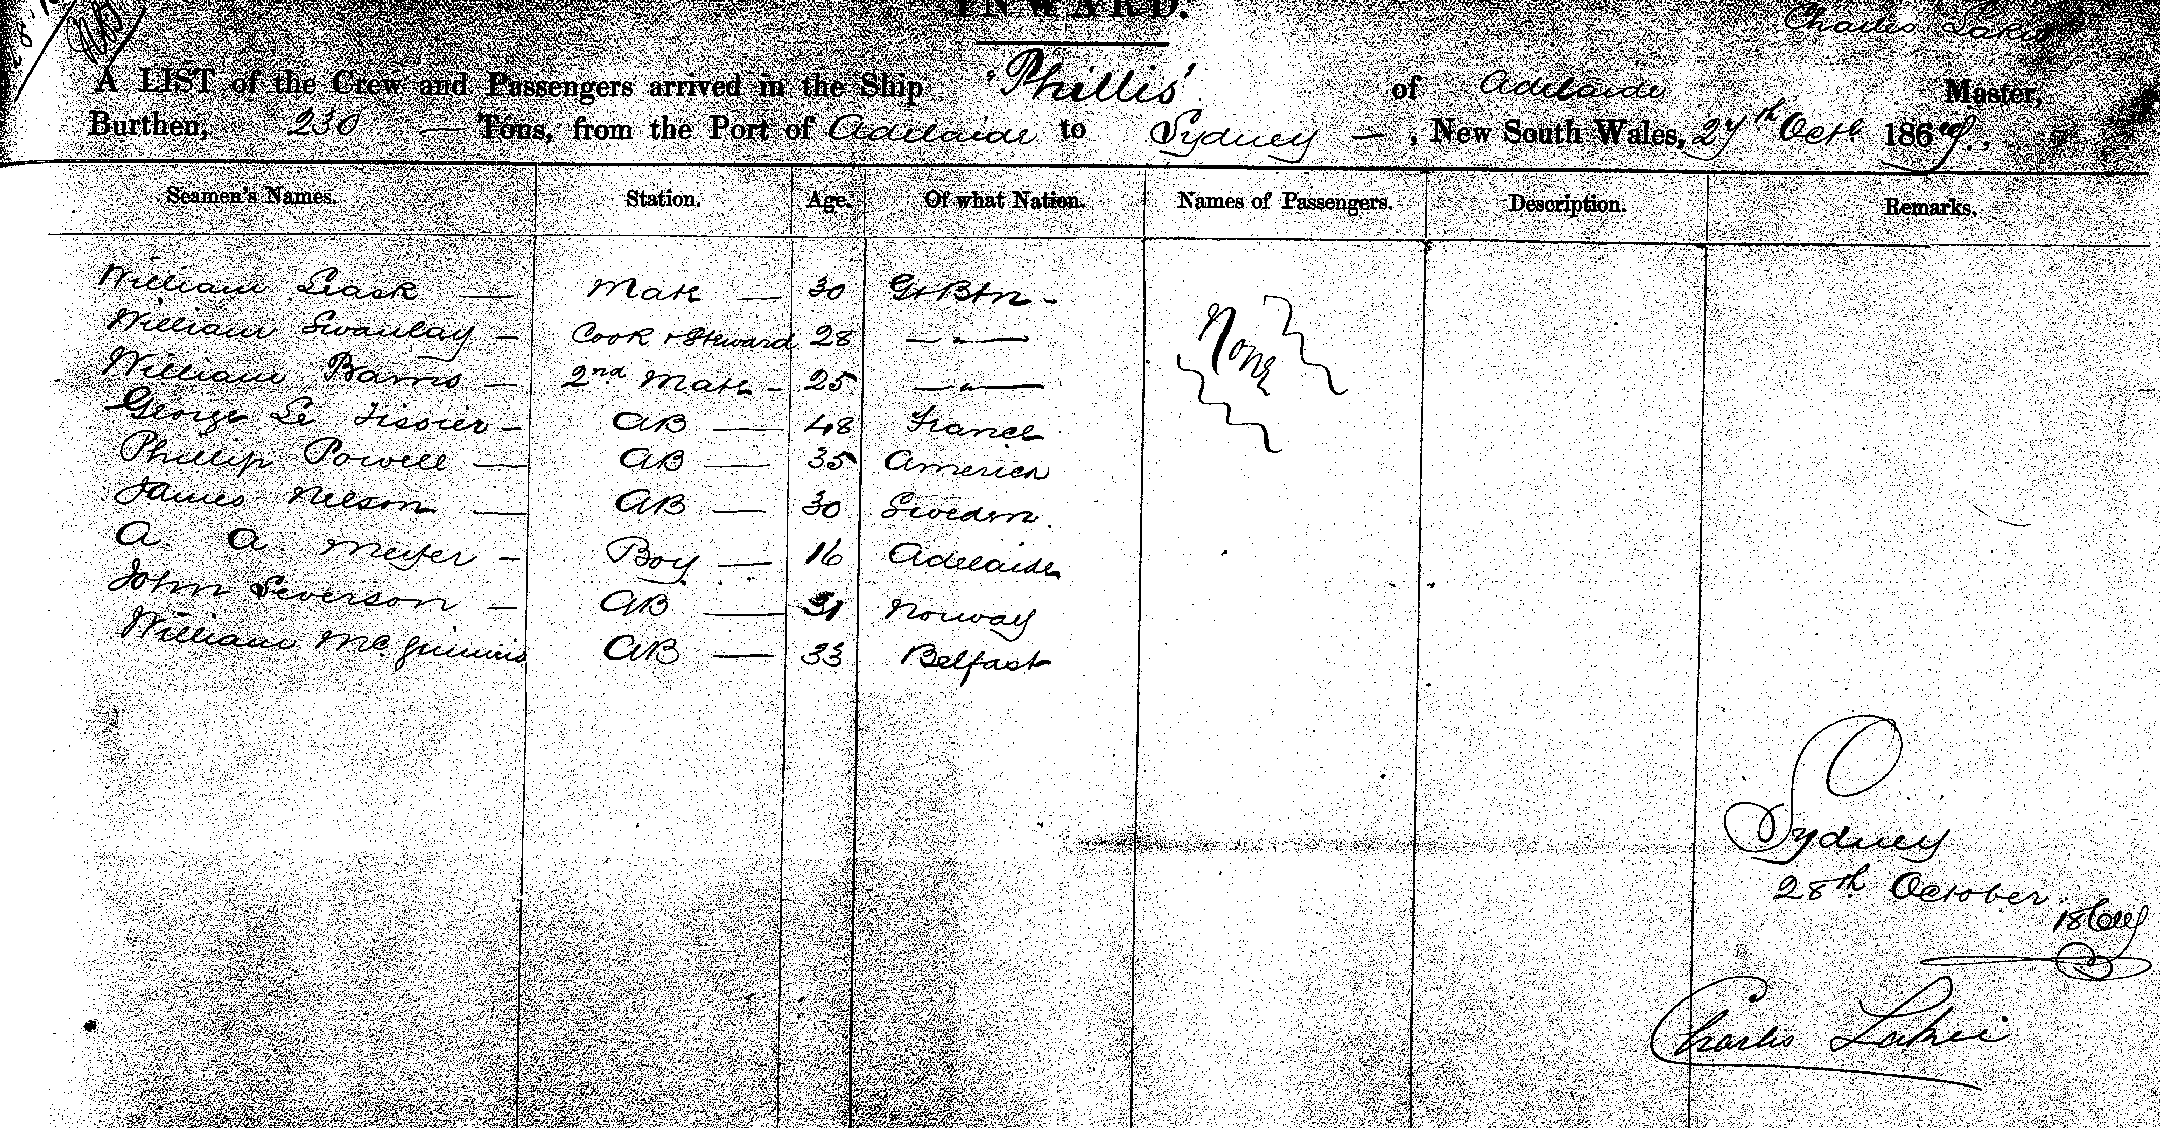 INWARD.
Charles
A LIST of the Crew and Passengers arrived in the Ship "Phillis" of Adelaide Master,
Burthen, 230 — Tons, from the Port of Adelaide to Sydney — , New South Wales, 27th Octr 186
Seamen's Names. Station. Age. Of what Nation. Names of Passengers. Description. Remarks.
William Leask — Mate — 30 Gt Btn - None
William Swanlay — Cook & Steward 28 — " —
William Barns — 2nd Mate - 25 — " —
George Le Tissier - AB — 48 France
Phillip Powell — AB — 35 America
James Nelson — AB — 30 Sweden.
A. A. Meyer - Boy — 16 Adelaide
John Severson — AB — 31 Norway
William McGuinnis AB — 33 Belfast
Sydney
28th October
Charles